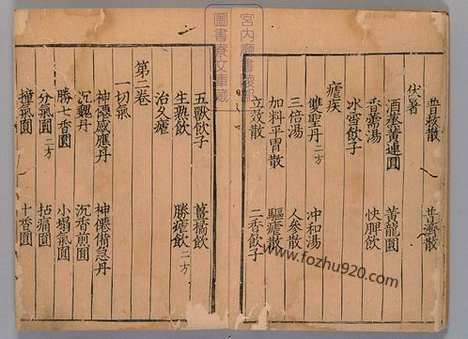 普濟散
伏暑
酒煮黃連圓 黃龍圓
香薷湯 快脾飲
冰雪飲子
瘧疾
雙聖丹二方 冲和湯
三倍湯 人參散
加料平胃散 驅瘧散
立效散 二香飲子
五獸飲子 薑橘飲
生熟飲 勝瘧飲二方
治久瘧
第二卷
一切氣
神僊感應丹 神僊術急丹
沉麝丹 沉香煎圓
勝七香圓 小塌氣圓
分氣圓二方 拈痛圓
撞氣圓 十香圓
www.fozhu920.com